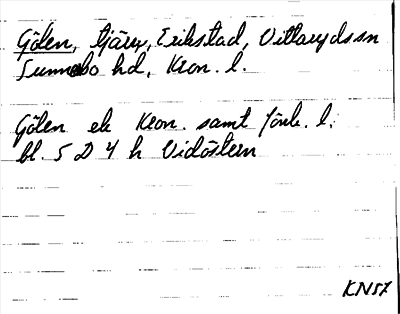 Gölen, tjärn, Erikstad, Vittaryds sn
Sunnerbo hd, Kron. l.
Gölen ek Kron. samt Jönk. l.
bl. 5 D 4 h Vidöstern
KN57